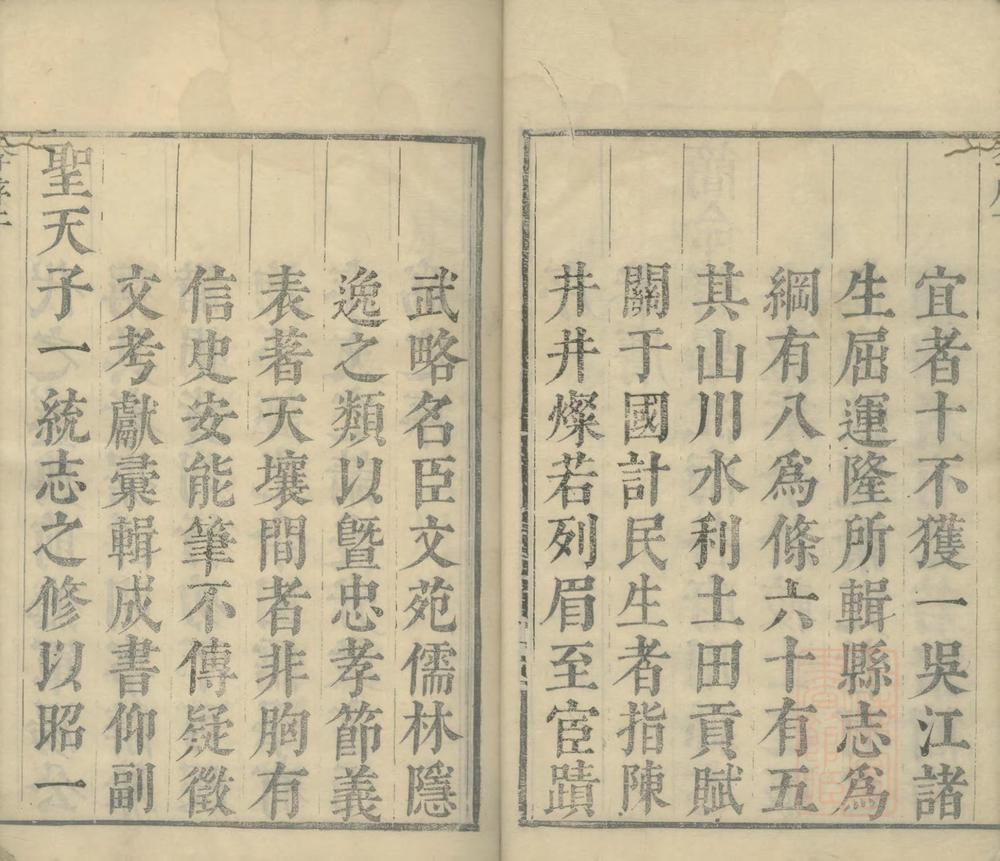 宜者十不獲一吳江諸
生屈運隆所輯縣志為
綱有八為條六十有五
其山川水利土田貢賦
關于國計民生者指陳
井井燦若列眉至宦蹟
武略名臣文苑儒林隱
逸之類以暨忠孝節義
表著天壤間者非胸有
信史安能筆不傳疑徵
文考獻彙輯成書仰副
聖天子一統志之修以昭一